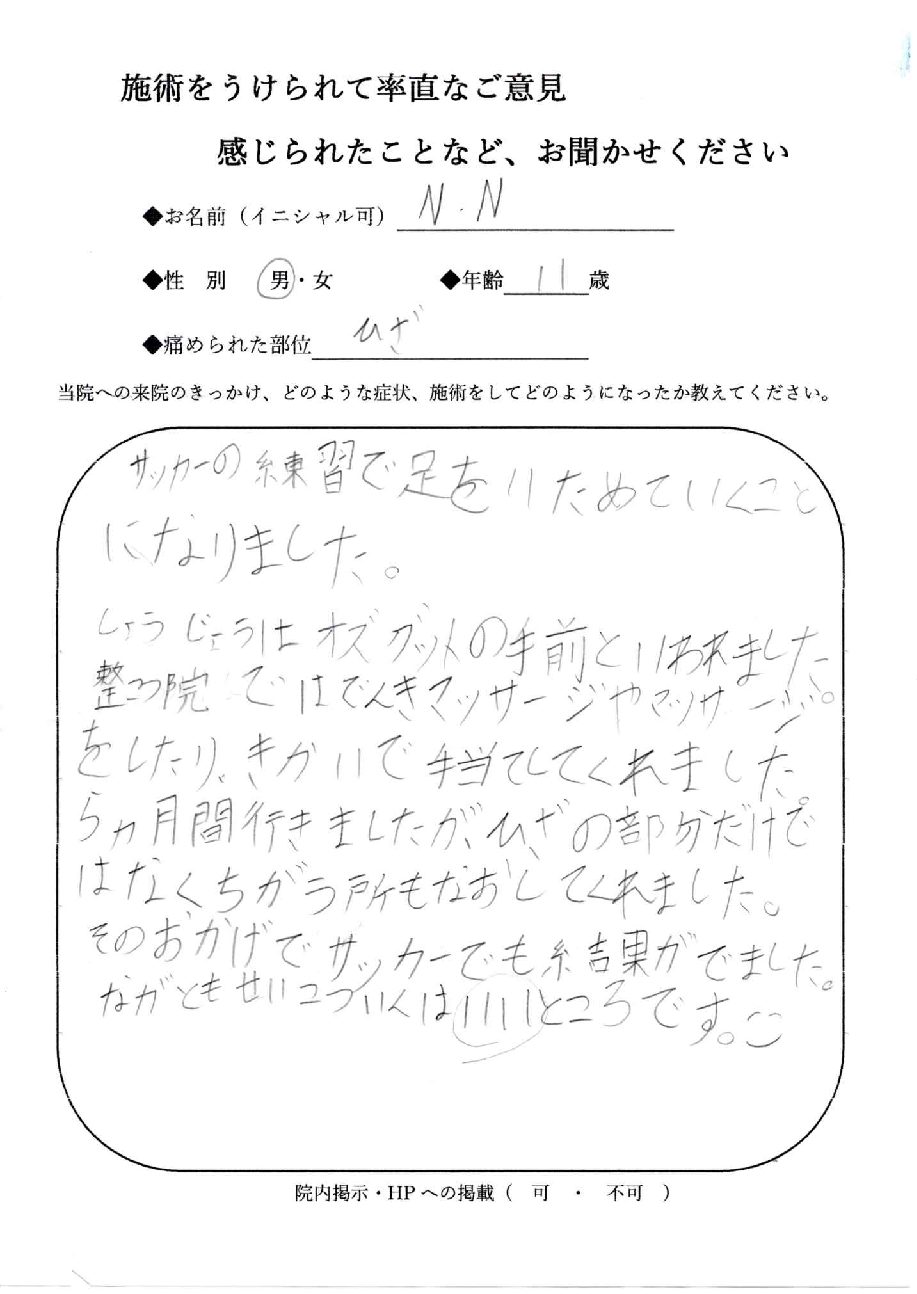 施術をうけられて率直なご意見
感じられたことなど、お聞かせください
◆お名前（イニシャル可） N.N
◆性 別 男・女 ◆年齢 11 歳
◆痛められた部位 ひざ
当院への来院のきっかけ、どのような症状、施術をしてどのようになったか教えてください。
サッカーの練習で足をいためていくこと
になりました。
しょうじょうはオズグットの手前といわれました。
整コツ院ではでんきマッサージやマッサージ
をしたり、きかいで手当てしてくれました。
5ヵ月間行きましたが、ひざの部分だけで
はなくちがう所もなおしてくれました。
そのおかげでサッカーでも結果がでました。
ながともせいこついんはいいところです。
院内掲示・HPへの掲載（ 可 ・ 不可 ）